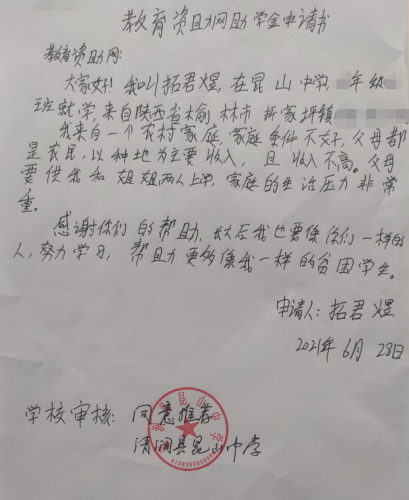 教育资助网助学金申请书
教育资助网:
大家好!我叫拓君煜,在昆山中学,年级
班就学,来自陕西省榆林市折家坪镇
我来自一个农村家庭,家庭条件不好,父母都
是农民,以种地为主要收入,且收入不高。父母
要供我和姐姐两人上学,家庭的生活压力非常
重。
感谢你们的帮助,长大后我也要像你们一样的
人,努力学习,帮助更多像我一样的贫困学生。
申请人:拓君煜
2021年6月28日
学校审核:同意推荐
清涧县昆山中学